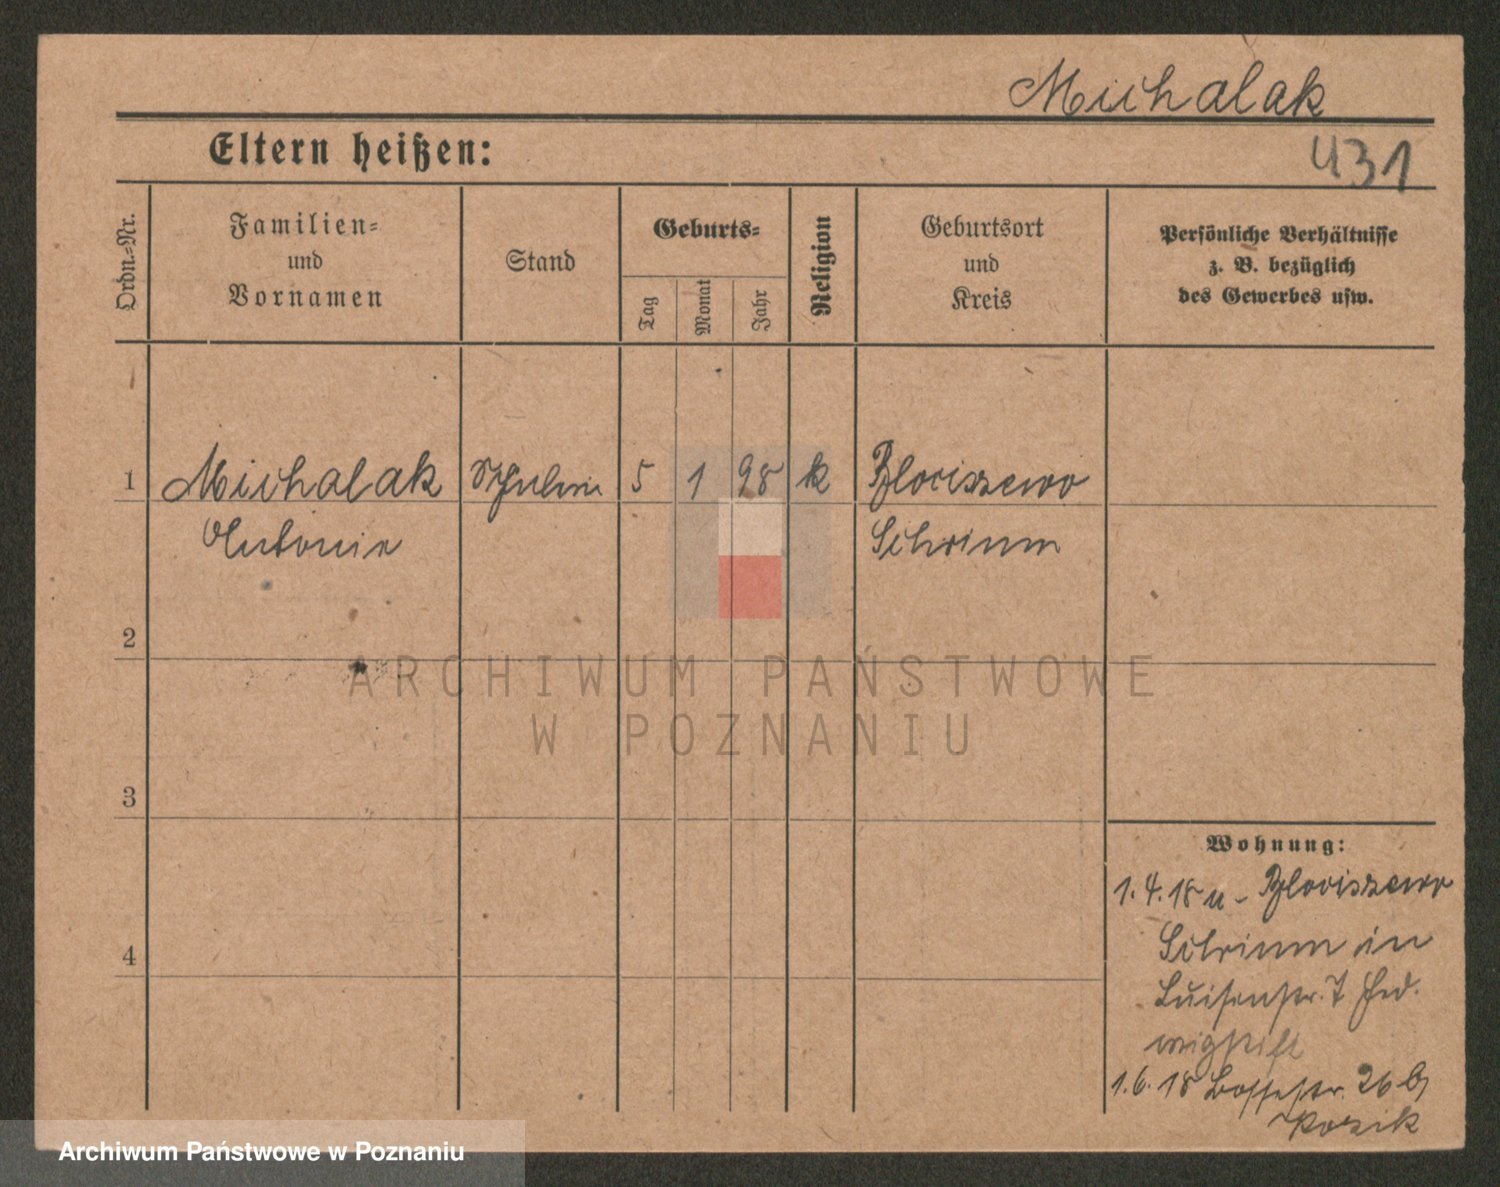 Michalak
Eltern heißen:
431
Ordn.-Nr.
Familien-
und
Vornamen
Stand
Geburts-
Tag
Monat
Jahr
Religion
Geburtsort
und
Kreis
Persönliche Verhältnisse
z. B. bezüglich
des Gewerbes usw.
1 Michalak 5 1 98 k
Antonie Schrimm
2
ARCHIWUM PAŃSTWOWE
W POZNANIU
3
Wohnung:
1.4.18 u -
Schrimm in
4
Luisenstr. 7 Hed.
wigstift
1.6.18 26 b
Kozik
Archiwum Państwowe w Poznaniu